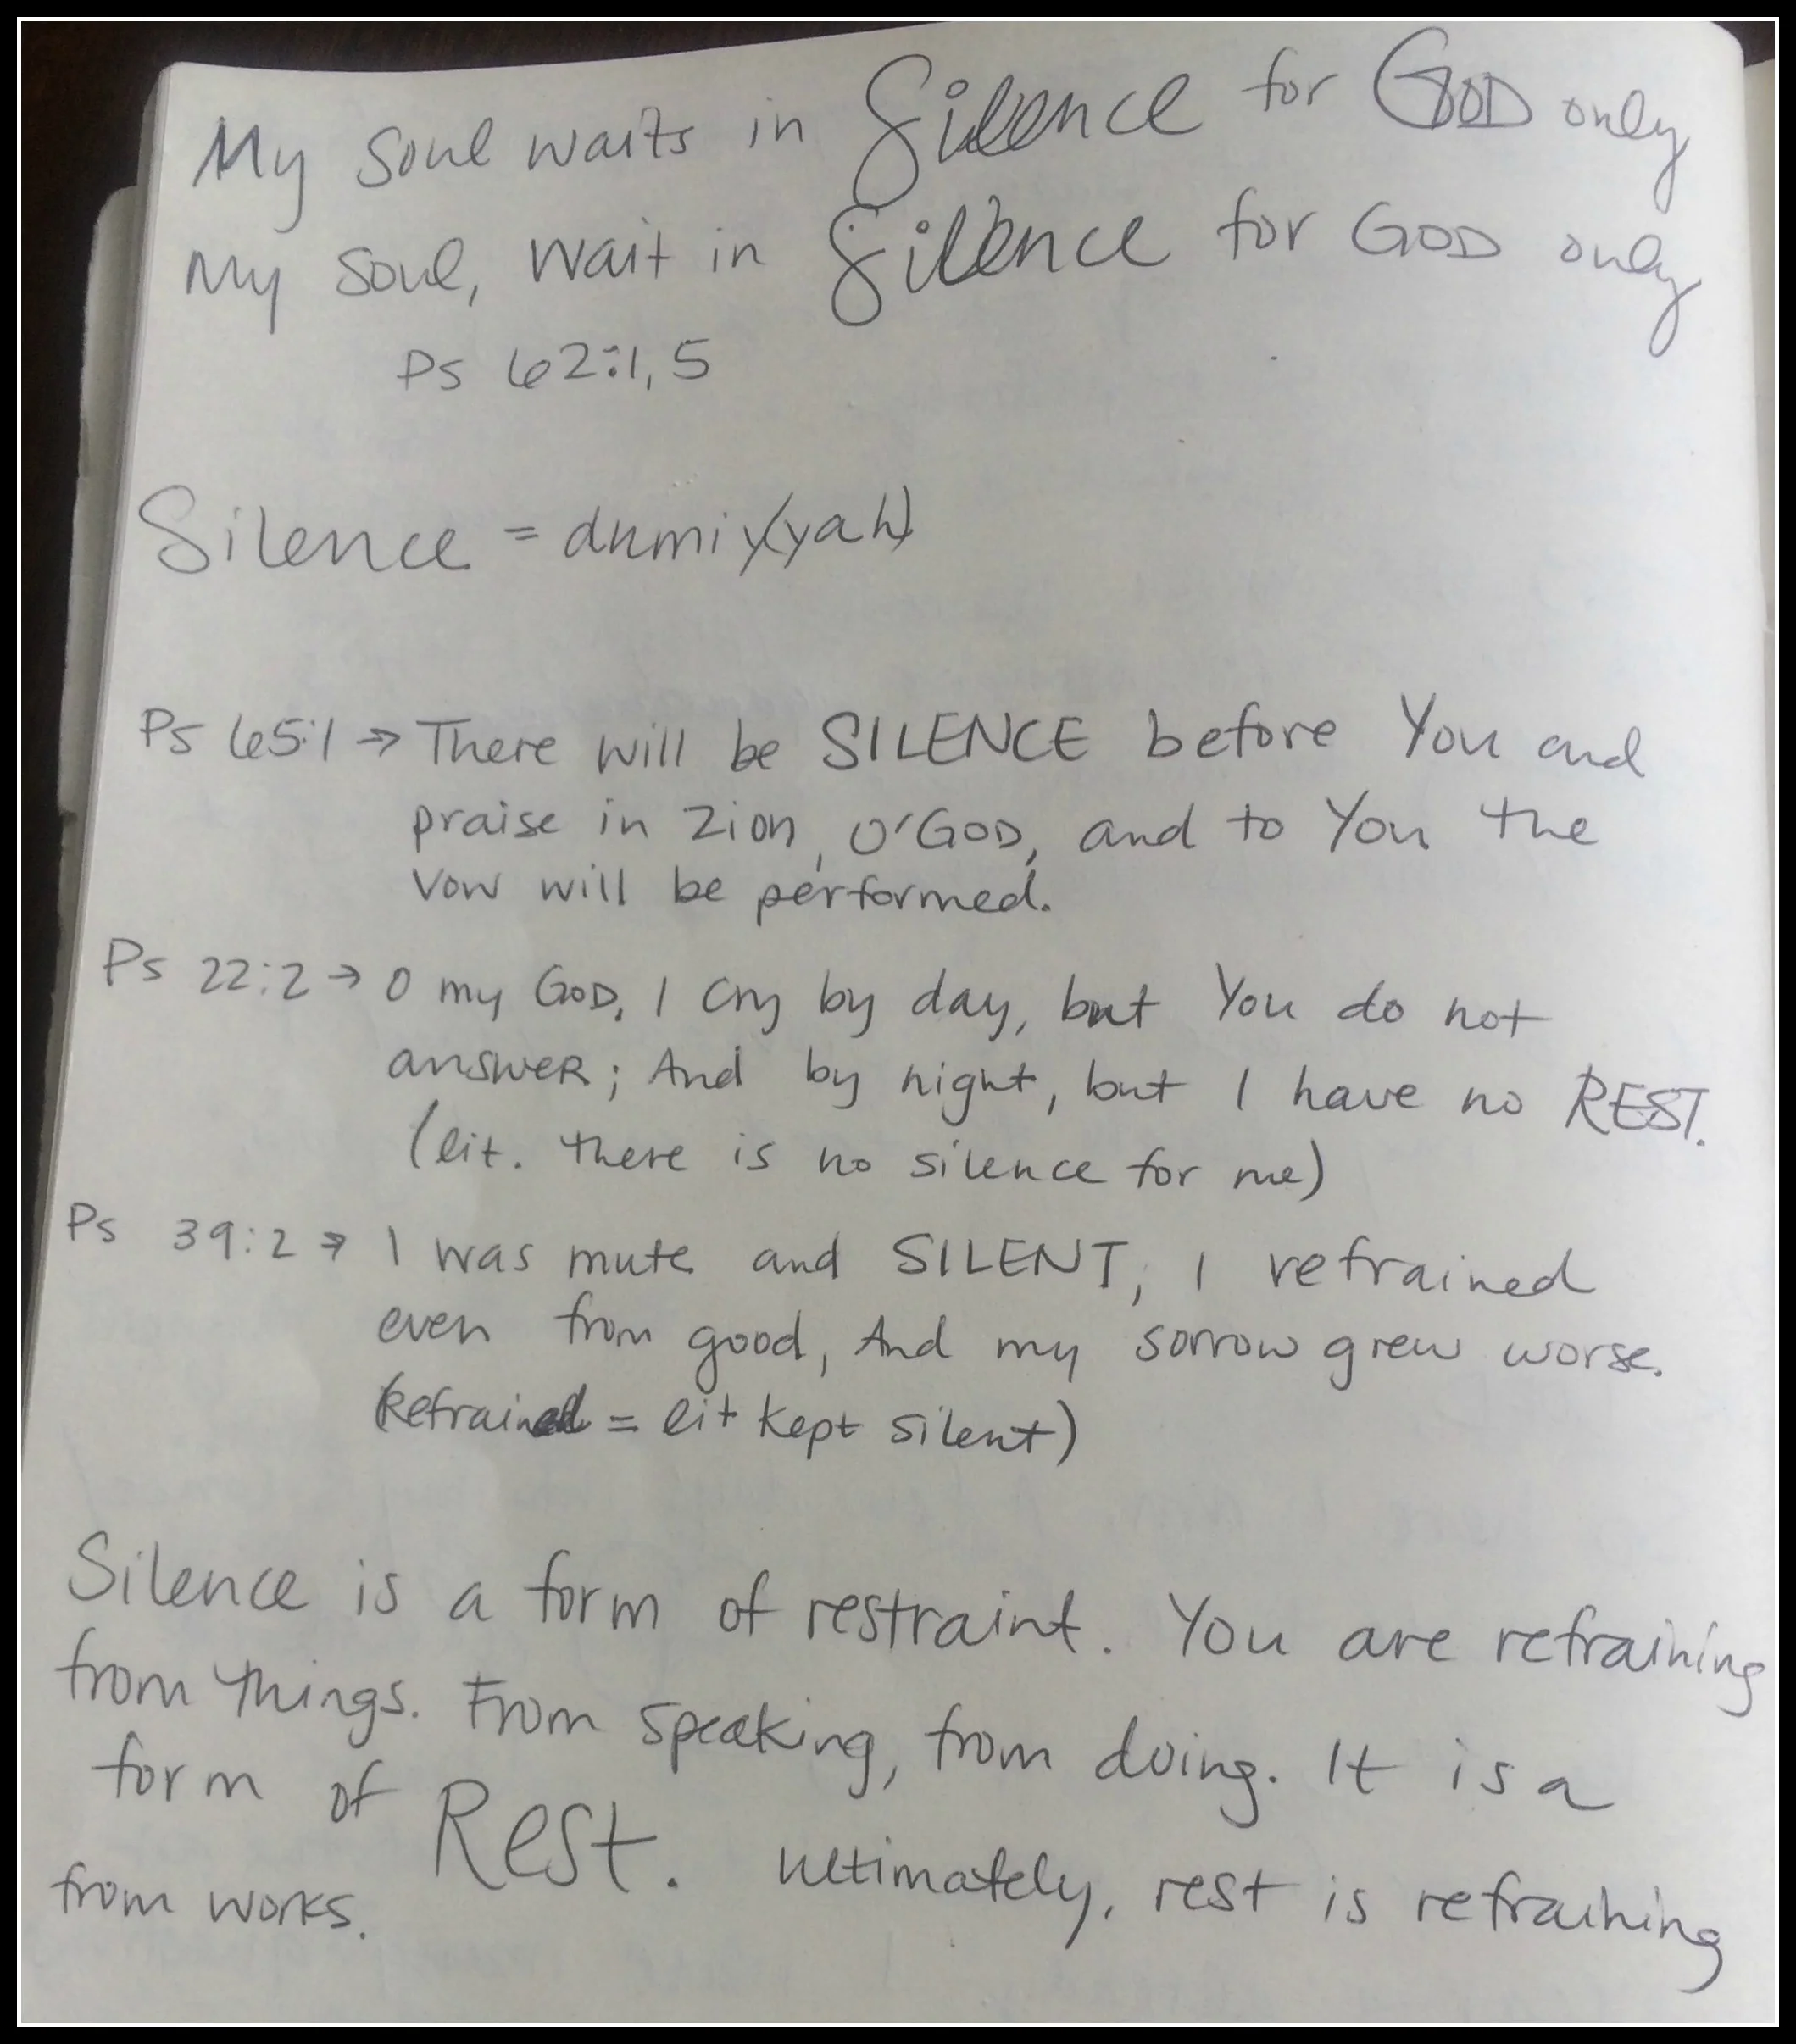 My soul waits in Silence for GOD only
My soul, wait in Silence for GOD only
Ps 62:1, 5
Silence = dumiy(yah)
Ps 65:1 → There will be SILENCE before You and
praise in Zion, O'GOD, and to You the
vow will be performed.
Ps 22:2 → O my GOD, I cry by day, but You do not
answer; And by night, but I have no REST.
(lit. there is no silence for me)
Ps 39:2 → I was mute and SILENT, I refrained
even from good, And my sorrow grew worse.
(Refrained = lit kept silent)
Silence is a form of restraint. You are refraining
from things. From speaking, from doing. It is a
form of Rest. Ultimately, rest is refraining
from works.